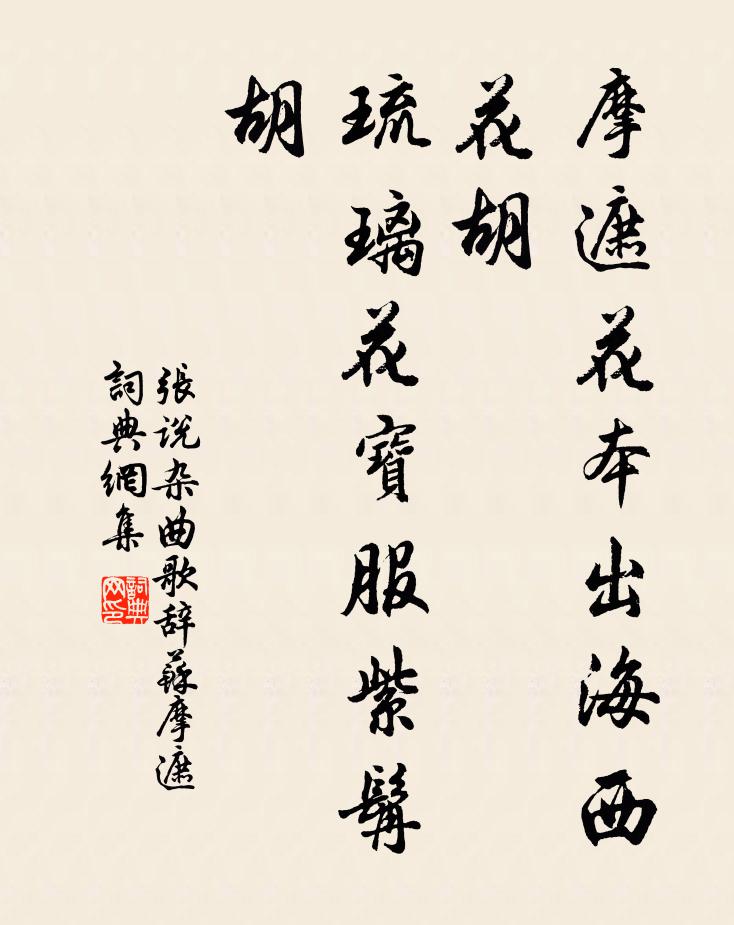 摩遮花本出海西
花胡
琉璃花寶服紫髯
胡
張说杂曲歌辞蘇摩遮
詞典網集
詞典网印